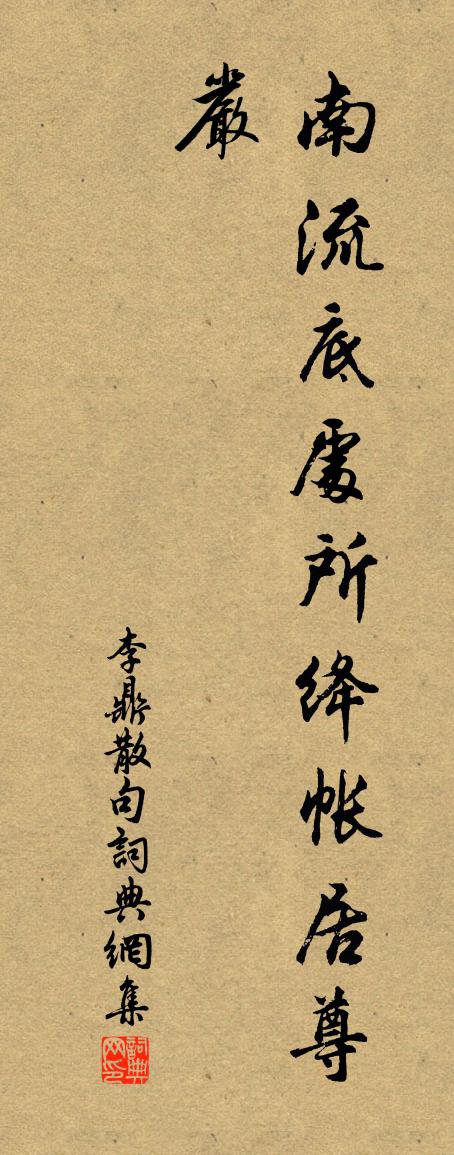 南流底處所絳帳居尊
嚴
李鼎散句詞典網集
詞典
网印